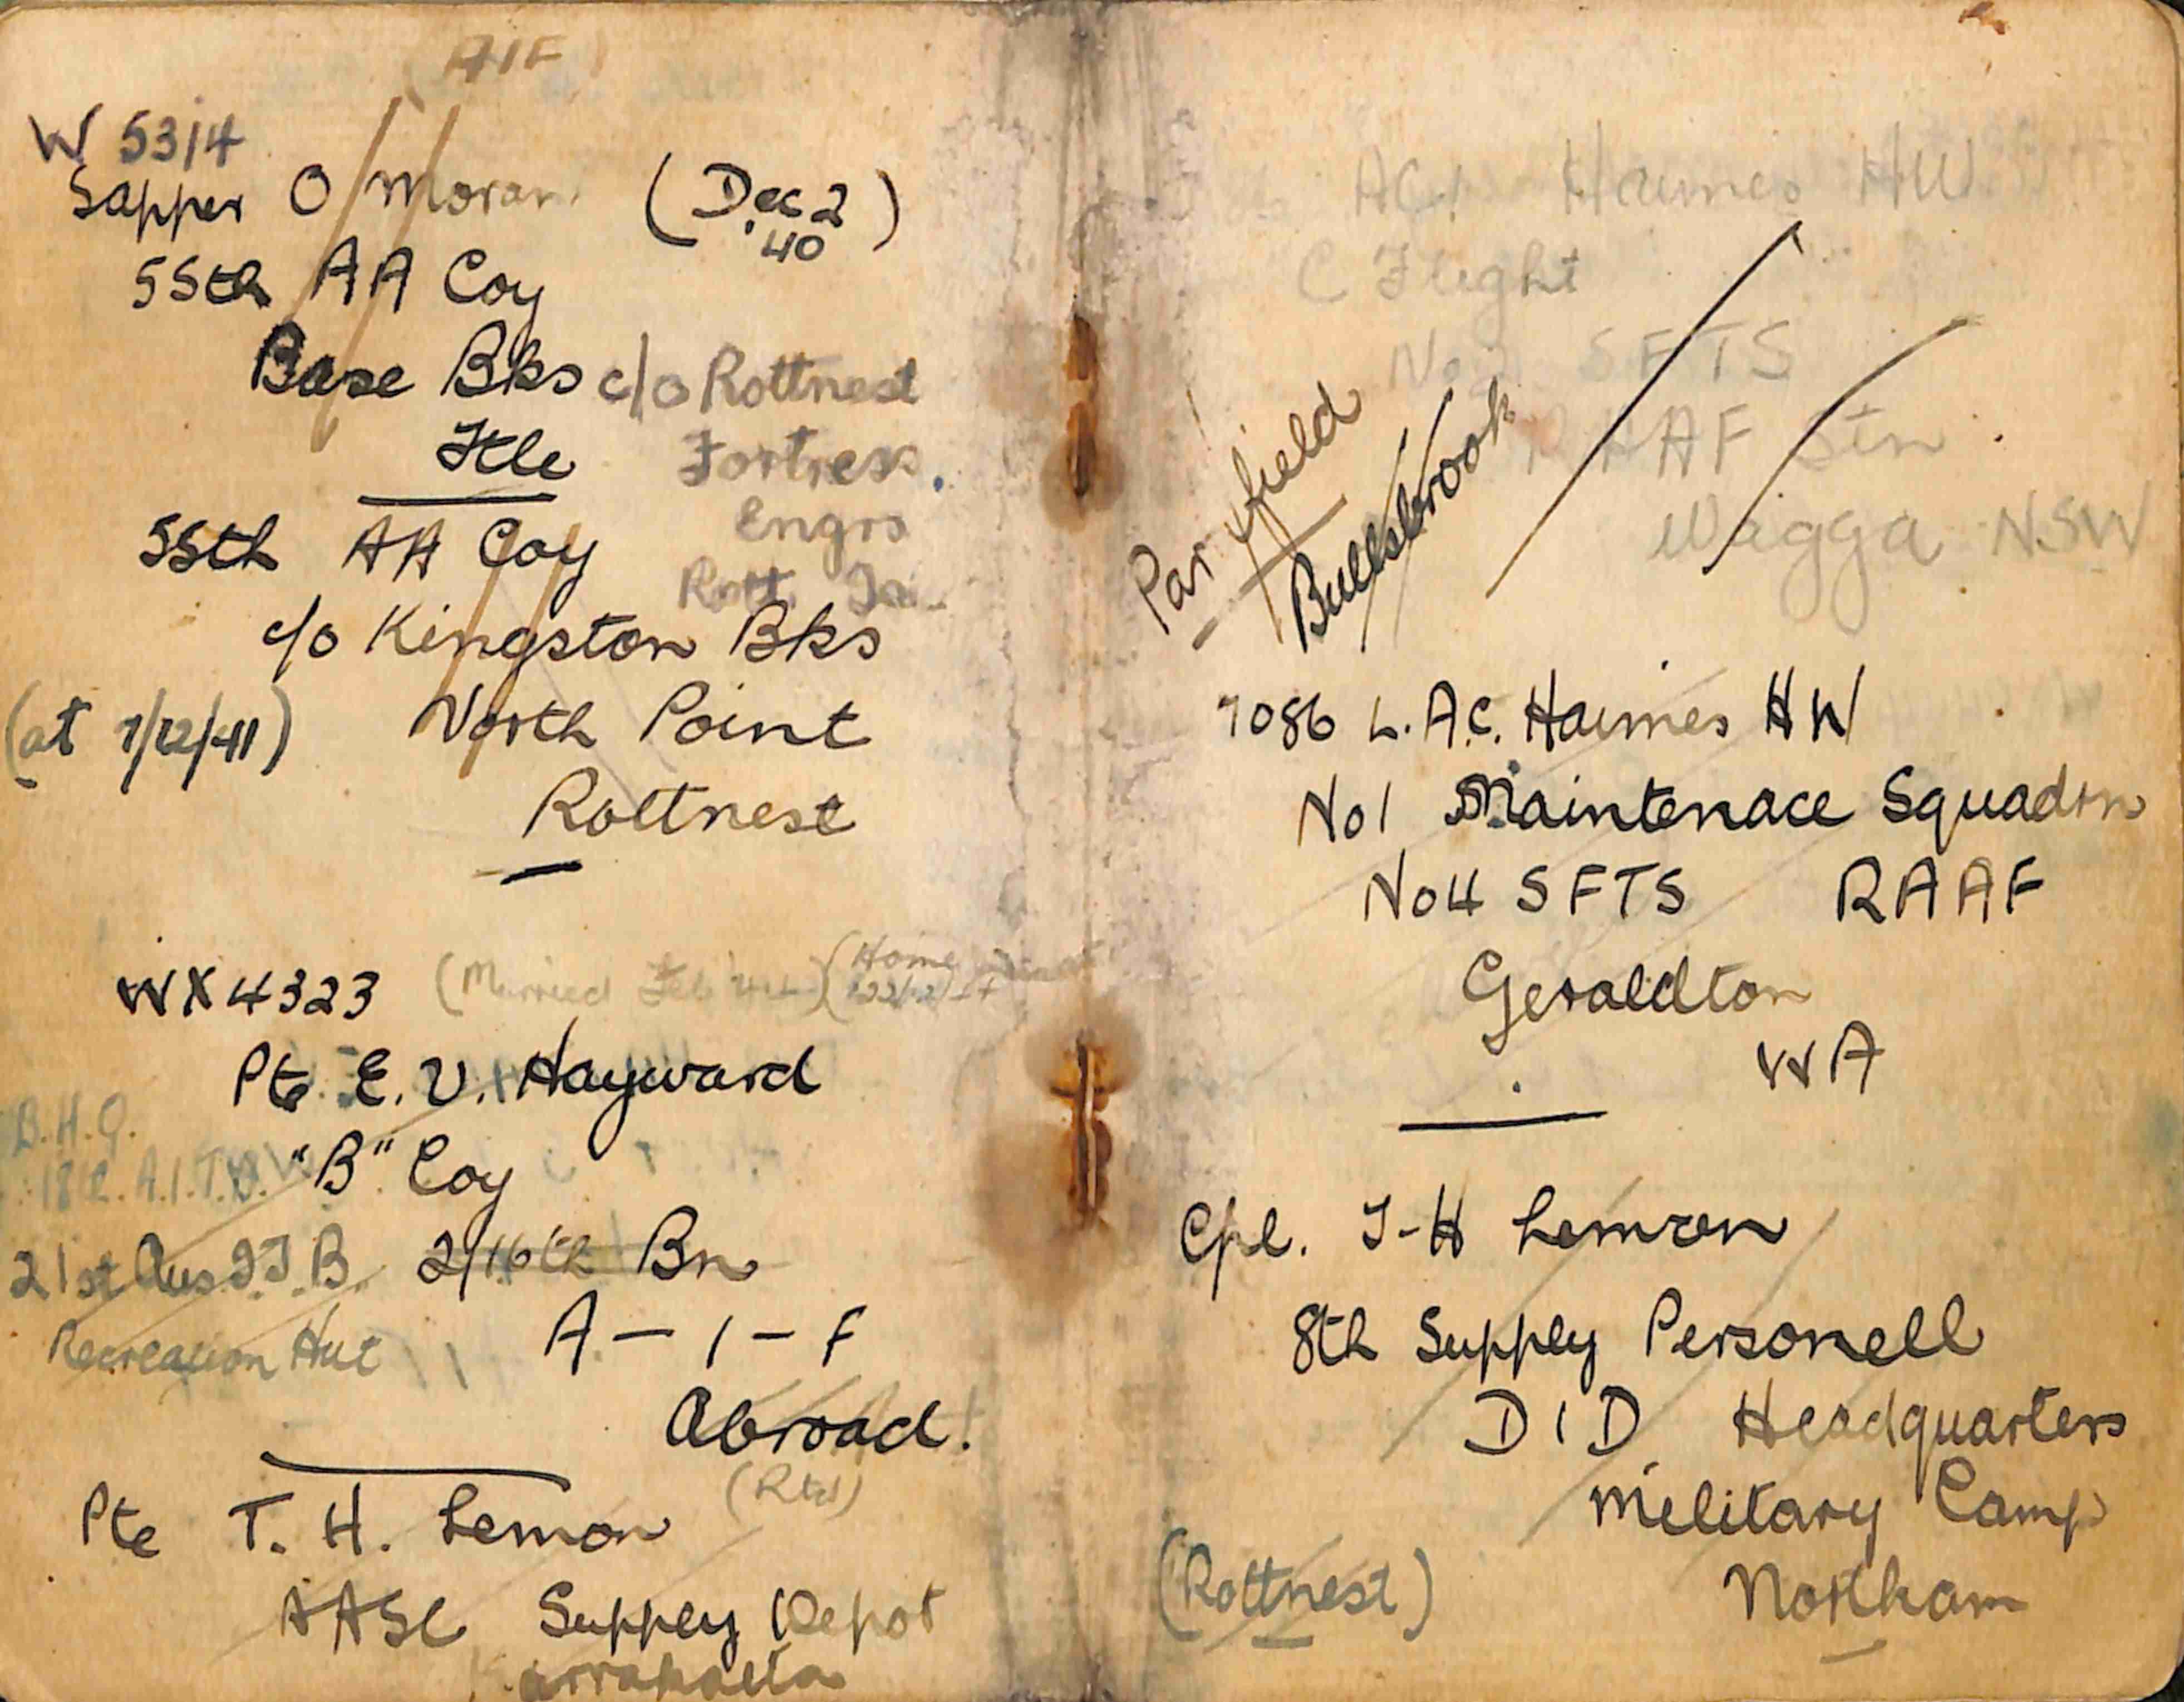 (AIF)
W 5314
Sapper O Moran (Dec 2
40)
55th AA Coy
Base Bks c/o Rottnest
Ftle Fortress.
Engrs
55th AA Coy
Rott
c/o Kingston Bks
(at 7/12/41) North Point
Rottnest
WX4323 (Married Feb (Home
Pte E. V. Hayward
B.H.Q.
"B" Coy
A.I.T.B.
21st Aus I.T.B. 2/16th Bn
A-I-F
Recreation Hut
Abroad!
(Rtd)
Pte T. H. Lemon
AASC Supply Depot
Karrakatta
AC1 Haimes HW
C Flight
No 2 SFTS
RAAF Stn
Wagga NSW
Parafield
Bullsbrook
7086 L.A.C. Haimes HW
No 1 Maintenace Squadrn
No 4 SFTS RAAF
Geraldton
WA
Cpl. T-H Lemon
8th Supply Personell
D I D Headquarters
Military Camp
(Rottnest) Northam